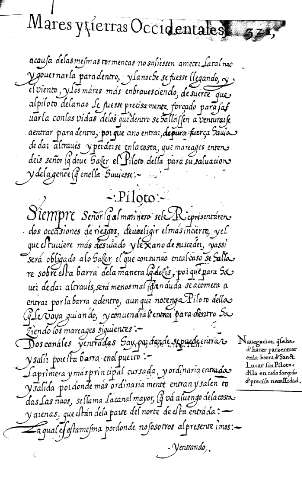 Mares y tierras Occidentales 37,
acausa de las mesmas tormentas no suffiessen
y gouernarla para dentro, y la noche se fuesse llegando, y
el viento, y los mares mas enbraueciendo, de suerte que
al piloto de la nao le fuese precisamente forçado para sal
uar la con las vidas de los que dentro se hallassen a venturarse
a entrar para dentro, por que a no entrar, de pura fuerça hauia
de dar al traues y perderse en la costa, que mareages enten
deis señor que deue hazer el Piloto della para su saluacion
y de la gente que en ella huuiere.
Piloto.
Siempre Señor que al marinero se le Representaren
dos occasiones de riesgos, deue elegir el mas incierto, y el
que estuuiere mas desuiado y lexano de suceder, y assi
será obligado a lo hazer el que aruinado en tal caso se halla
re sobre esta barra de la manera que dezis, por que para ha
uer de dar al traues, será menos mal sin duda se acometa a
entrar por la barra adentro, aun que no tenga Piloto della
que le vaya guiando, y començará a entrar para dentro ha
ziendo los mareages siguientes.
Dos canales y entradas hay por donde se puede entrar
y salir por esta barra en el puerto.
La primera y mas principal cursada, y ordinaria entrada
y salida por donde mas ordinariamente entran y salen to
das las naos, se llama la canal mayor, que va al luengo de la costa
y arenas, que estan de la parte del norte de esta entrada:
La qual es esta mesma por donde nosotros al presente imos:
y entrando,
Nauegacion que se ha
de hazer para entrar
en la barra de Sanct
Lucar sin Piloto
della en caso forçado
de precisa necessidad.